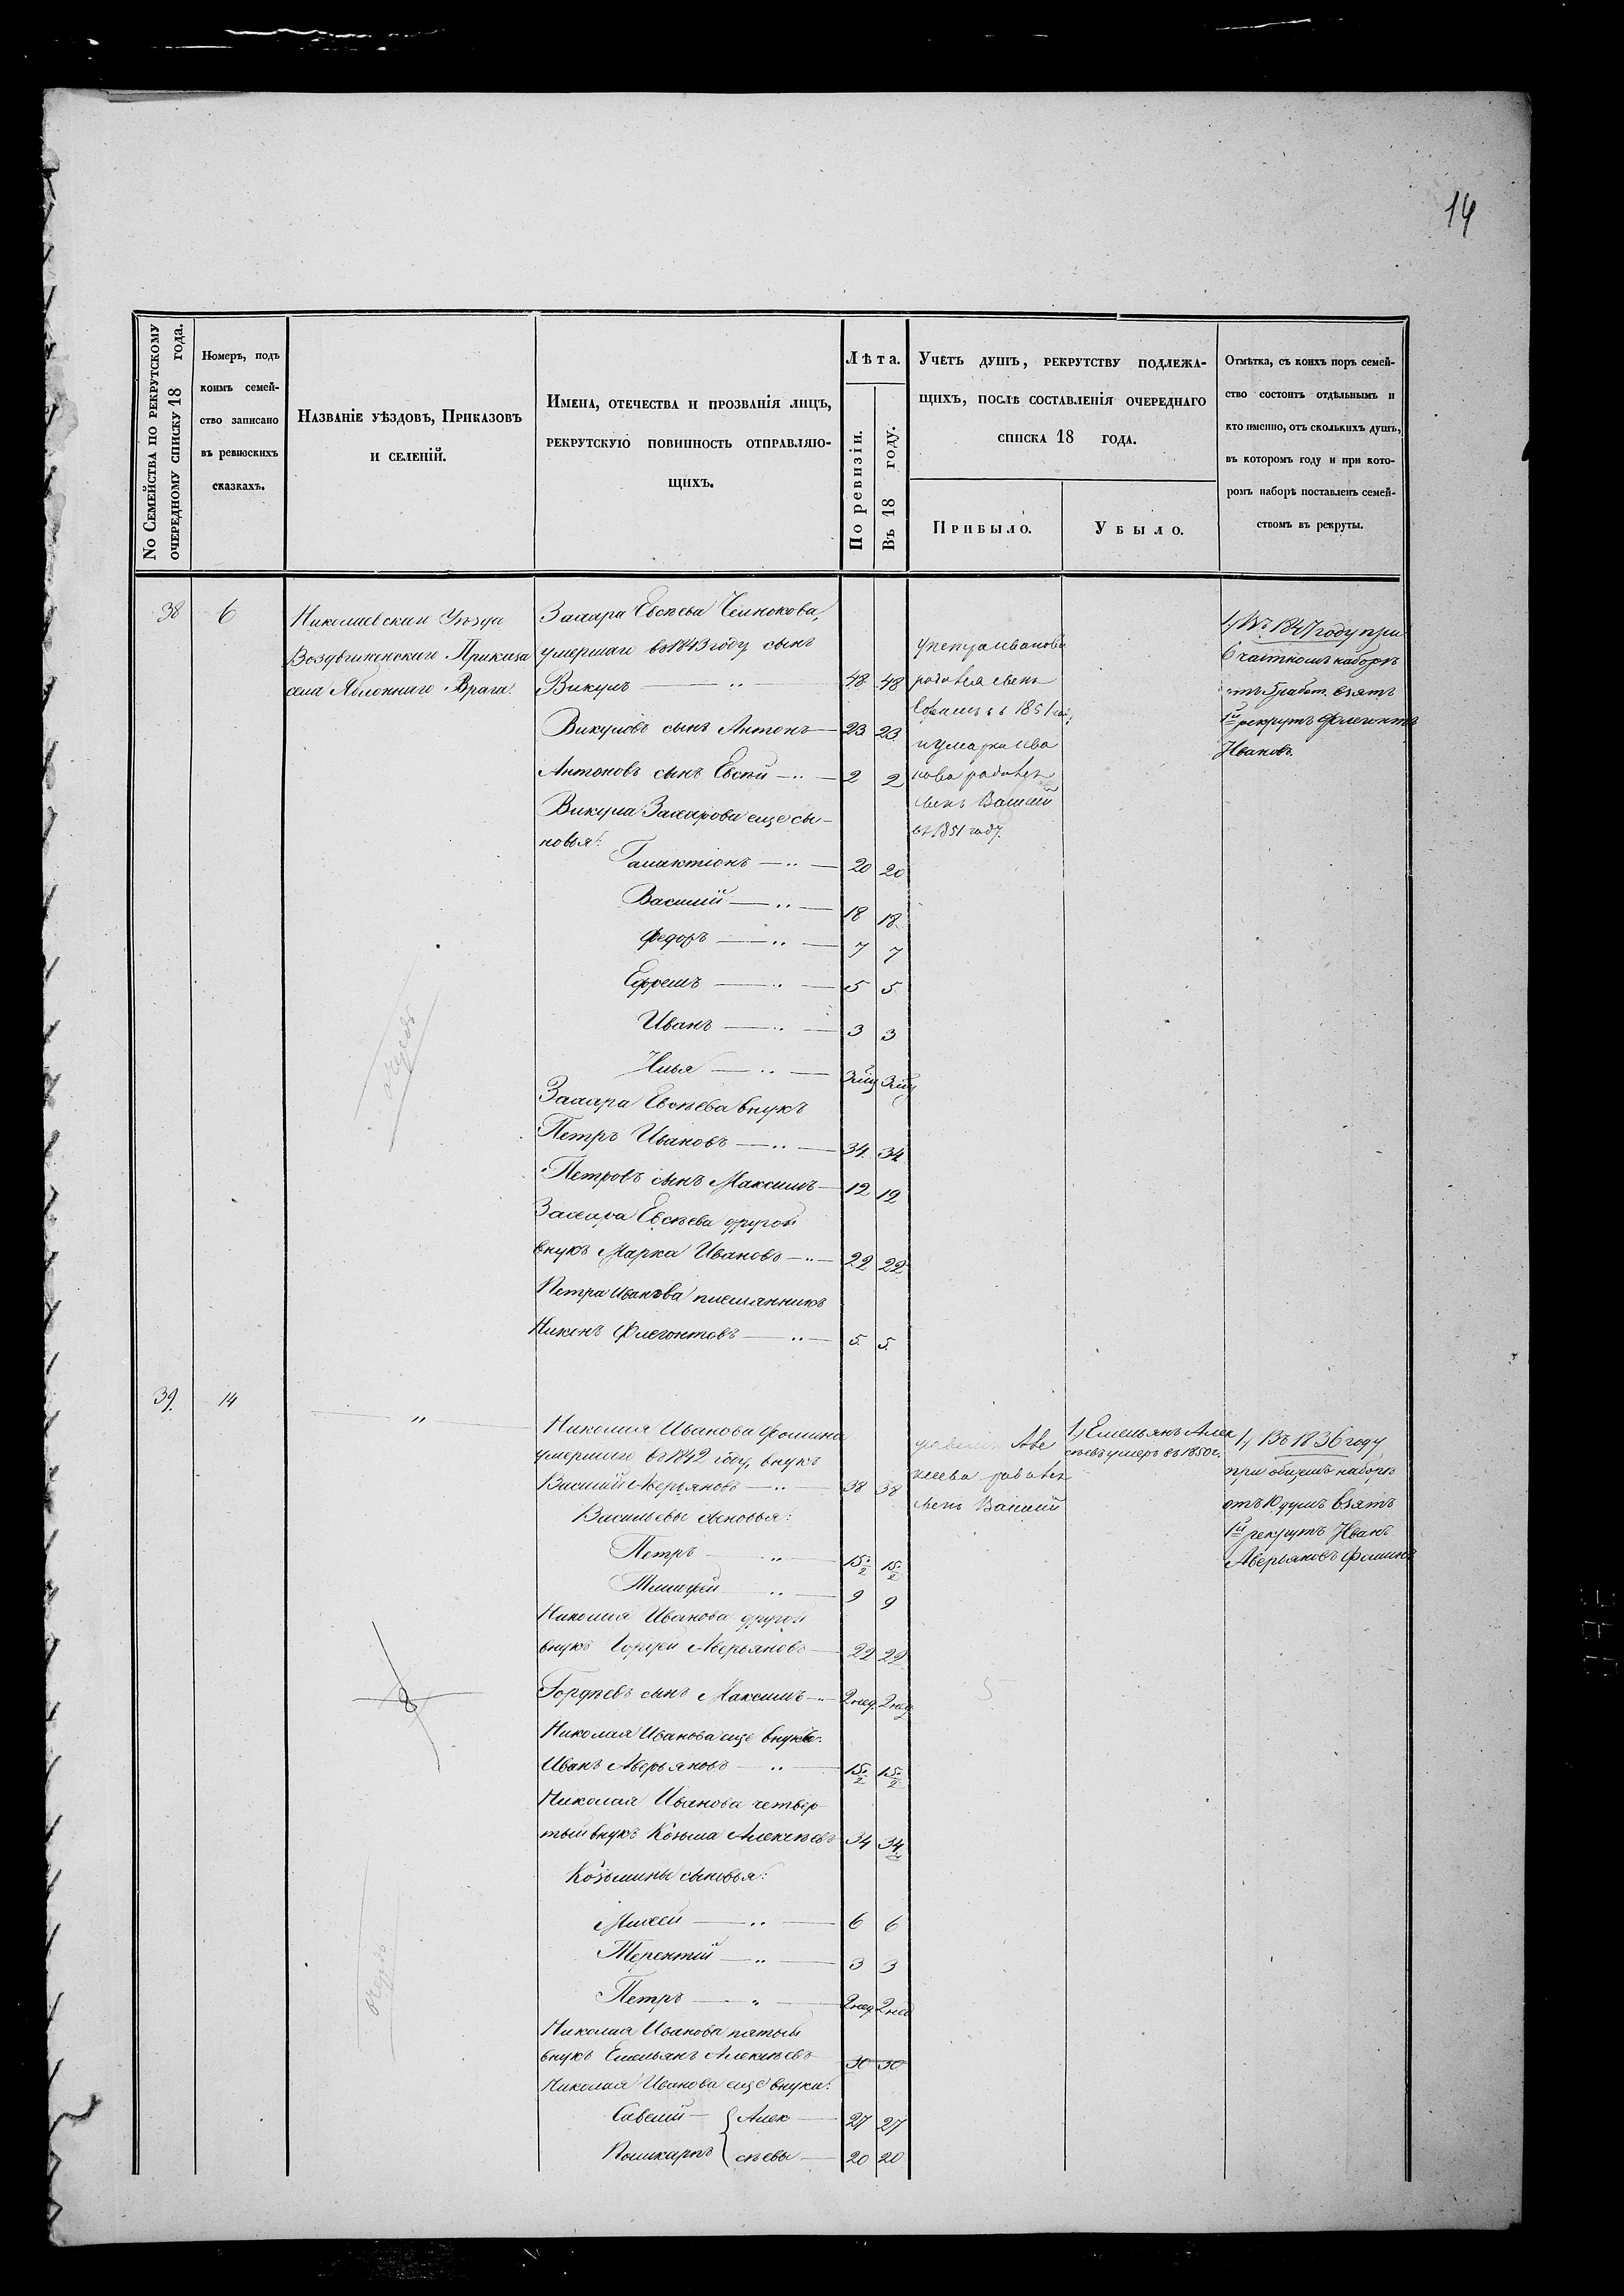 14
No Семейства по рекрутскому
очередному списку 18 года.
Номеръ, подъ
коимъ семей-
ство записано
въ ревизскихъ
сказкахъ.
Названіе уѣздовъ, Приказовъ
и селеній.
Имена, отечества и прозванія лицъ,
рекрутскую повинность отправляю-
щихъ.
Лѣта.
По ревизіи.
Въ 18 году.
Учетъ душъ, рекрутству подлежа-
щихъ, послѣ составленія очереднаго
списка 18 года.
Прибыло.
Убыло.
Отмѣтка, съ коихъ поръ семей-
ство состоитъ отдѣльнымъ и
кто именно, отъ сколькихъ душъ,
въ которомъ году и при кото-
ромъ наборѣ поставленъ семей-
ствомъ въ рекруты.
38
6
Николаевскаго Уѣзда
Воздвиженскаго Приказа
села Яблоннаго Врага.
Захара Евсѣева
умершаго въ 1843 году сынъ
Викулъ — " — 48 48
Викуловъ сынъ Антонъ — 23 23
Антоновъ сынъ Евсѣй — " — 2 2
Викула Захарова еще сы-
новья:
Галактіонъ — " — 20 20
Василий — " — 18 18
Федоръ — " — 7 7
Ефремъ — " — 5 5
Иванъ — " — 3 3
Илья — " —
Захара Евсѣева внукъ
Петръ Ивановъ — " — 34 34
Петровъ сынъ Максимъ — 12 12
Захара Евсѣева другой
внукъ Марка Ивановъ — " — 22 22
Петра Иванова племянникъ
Никонъ Флегонтовъ — " — 5. 5.
у Петра Иванова
родился сынъ
Ефремъ въ 1851 год
и у Марка Ива
нова родился
сынъ Василий
въ 1851 году.
1, Въ 1847 году при
6 частномъ наборѣ
отъ 5 работ. взятъ
1й рекрутъ Флегонтъ
Ивановъ.
39.
14
— " —
Николая Иванова Фомина
умершаго въ 1842 году, внукъ
Василий Аверьяновъ — " — 38 38
Васильевы сыновья:
Петръ — " — 15½ 15½
Тимофей — " — 9 9
Николая Иванова другой
внукъ Гордѣй Аверьяновъ — 22 22
Гордѣевъ сынъ Максимъ — " 2 нед. 2 нед
Николая Иванова еще внукъ:
Иванъ Аверьяновъ — " — 15½ 15½
Николая Иванова четвер-
тый внукъ Козьма Алексѣевъ 34 34
Козьмины сыновья:
Михей — " — 6 6
Терентій — " — 3 3
Петръ — " — 2 нед 2 нед
Николая Иванова пятый
внукъ Емельянъ Алексѣевъ 30 30
Николая Иванова еще внуки:
Савелий — { Алек — 27 27
Поликарпъ { сѣевы — 20 20
родился
сынъ Василий
1, Емельянъ Алек
сѣевъ умеръ въ 1850 г.
1, Въ 1836 году
при общемъ наборѣ
отъ 10 душъ взятъ
1й рекрутъ Иванъ
Аверьяновъ Фоминъ